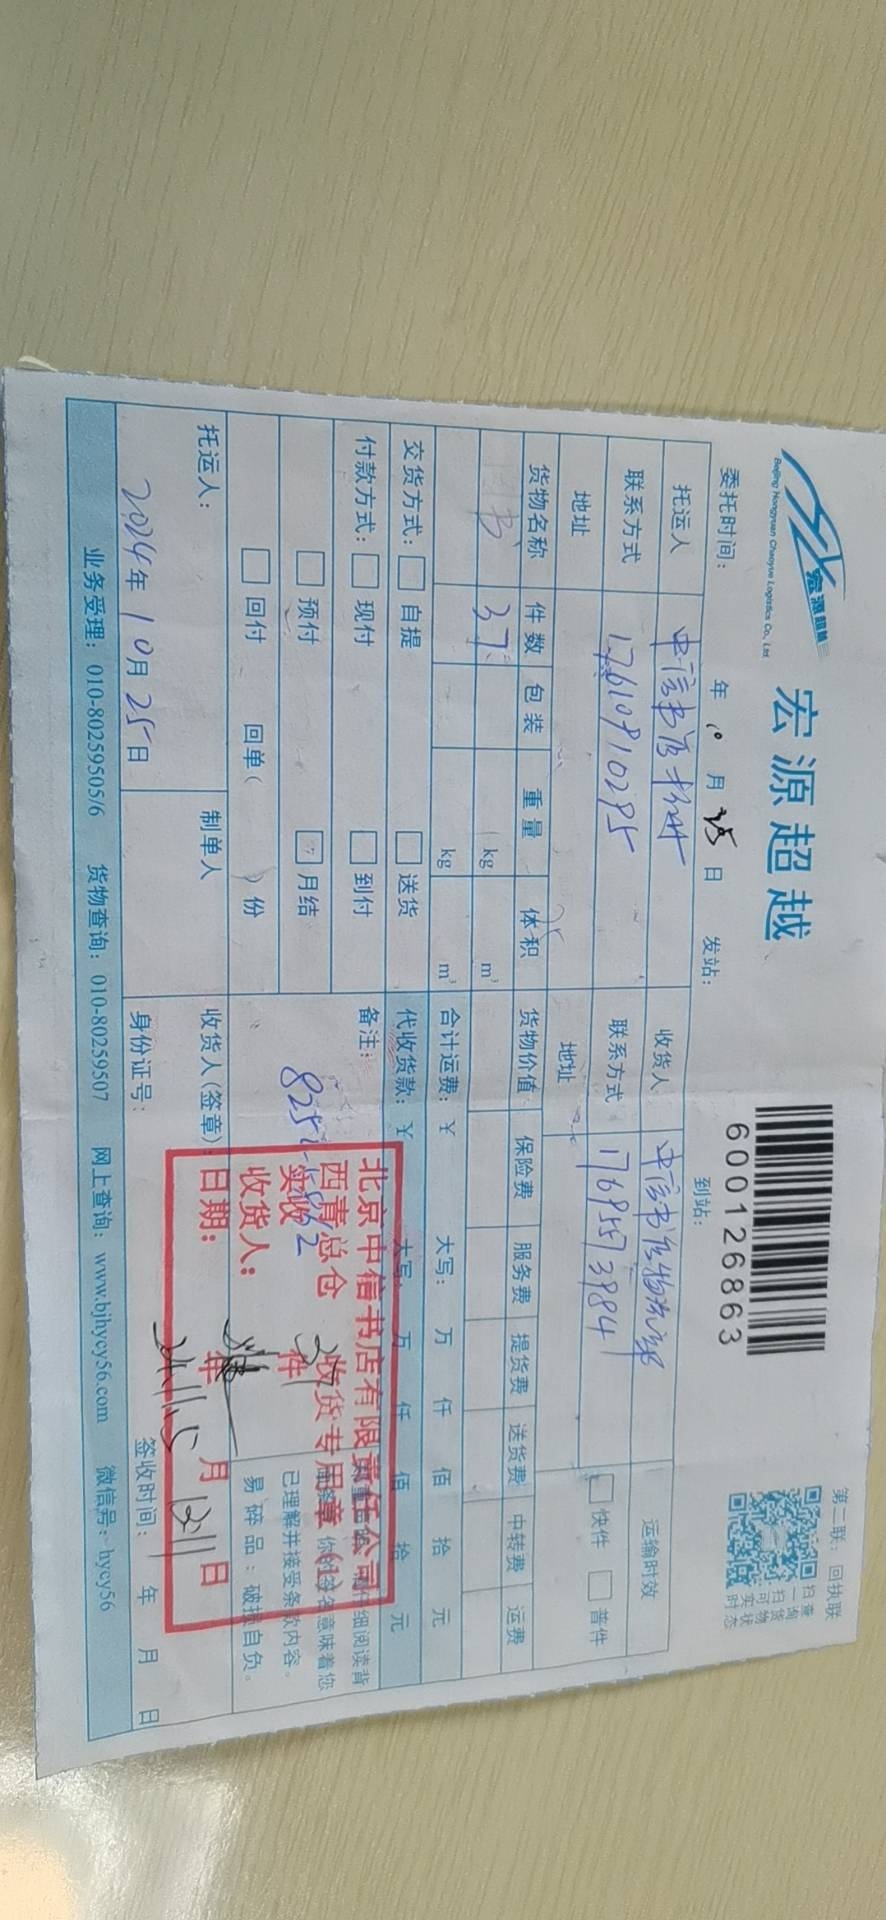 宏源超越
Beijing Hongyuan Chaoyue Logistics Co., Ltd
宏源超越
600126863
第二联：回执联
扫查
一询
扫货
可物
实状
时态
委托时间： 年 10 月 25 日 发站： 到站：
托运人 中信书店 收货人 中信书店物流部 运输时效
联系方式 17610810295 联系方式 17695573984 快件 普件
地址 地址
货物名称 件数 包装 重量 体积 货物价值 保险费 服务费 提货费 送货费 中转费 运费
书 37 kg m³
kg m³ 合计运费：¥ 大写： 万 仟 佰 拾 元
交货方式： 自提 送货 代收货款：¥ 大写： 万 仟 佰 拾 元
付款方式： 现付 到付 备注：
预付 月结
回付 回单( )份
细阅读背
你的签名意味着您
已理解并接受条款内容。
易碎品：破损自负。
北京中信书店有限责任公司
西青总仓 收货专用章 (1)
实收 37 件
收货人：
日期： 年 月 日
托运人： 制单人 收货人(签章)：
2024年10月25日 身份证号： 签收时间： 年 月 日
业务受理：010-80259505/6 货物查询：010-80259507 网上查询：www.bjhycy56.com 微信号：hycy56